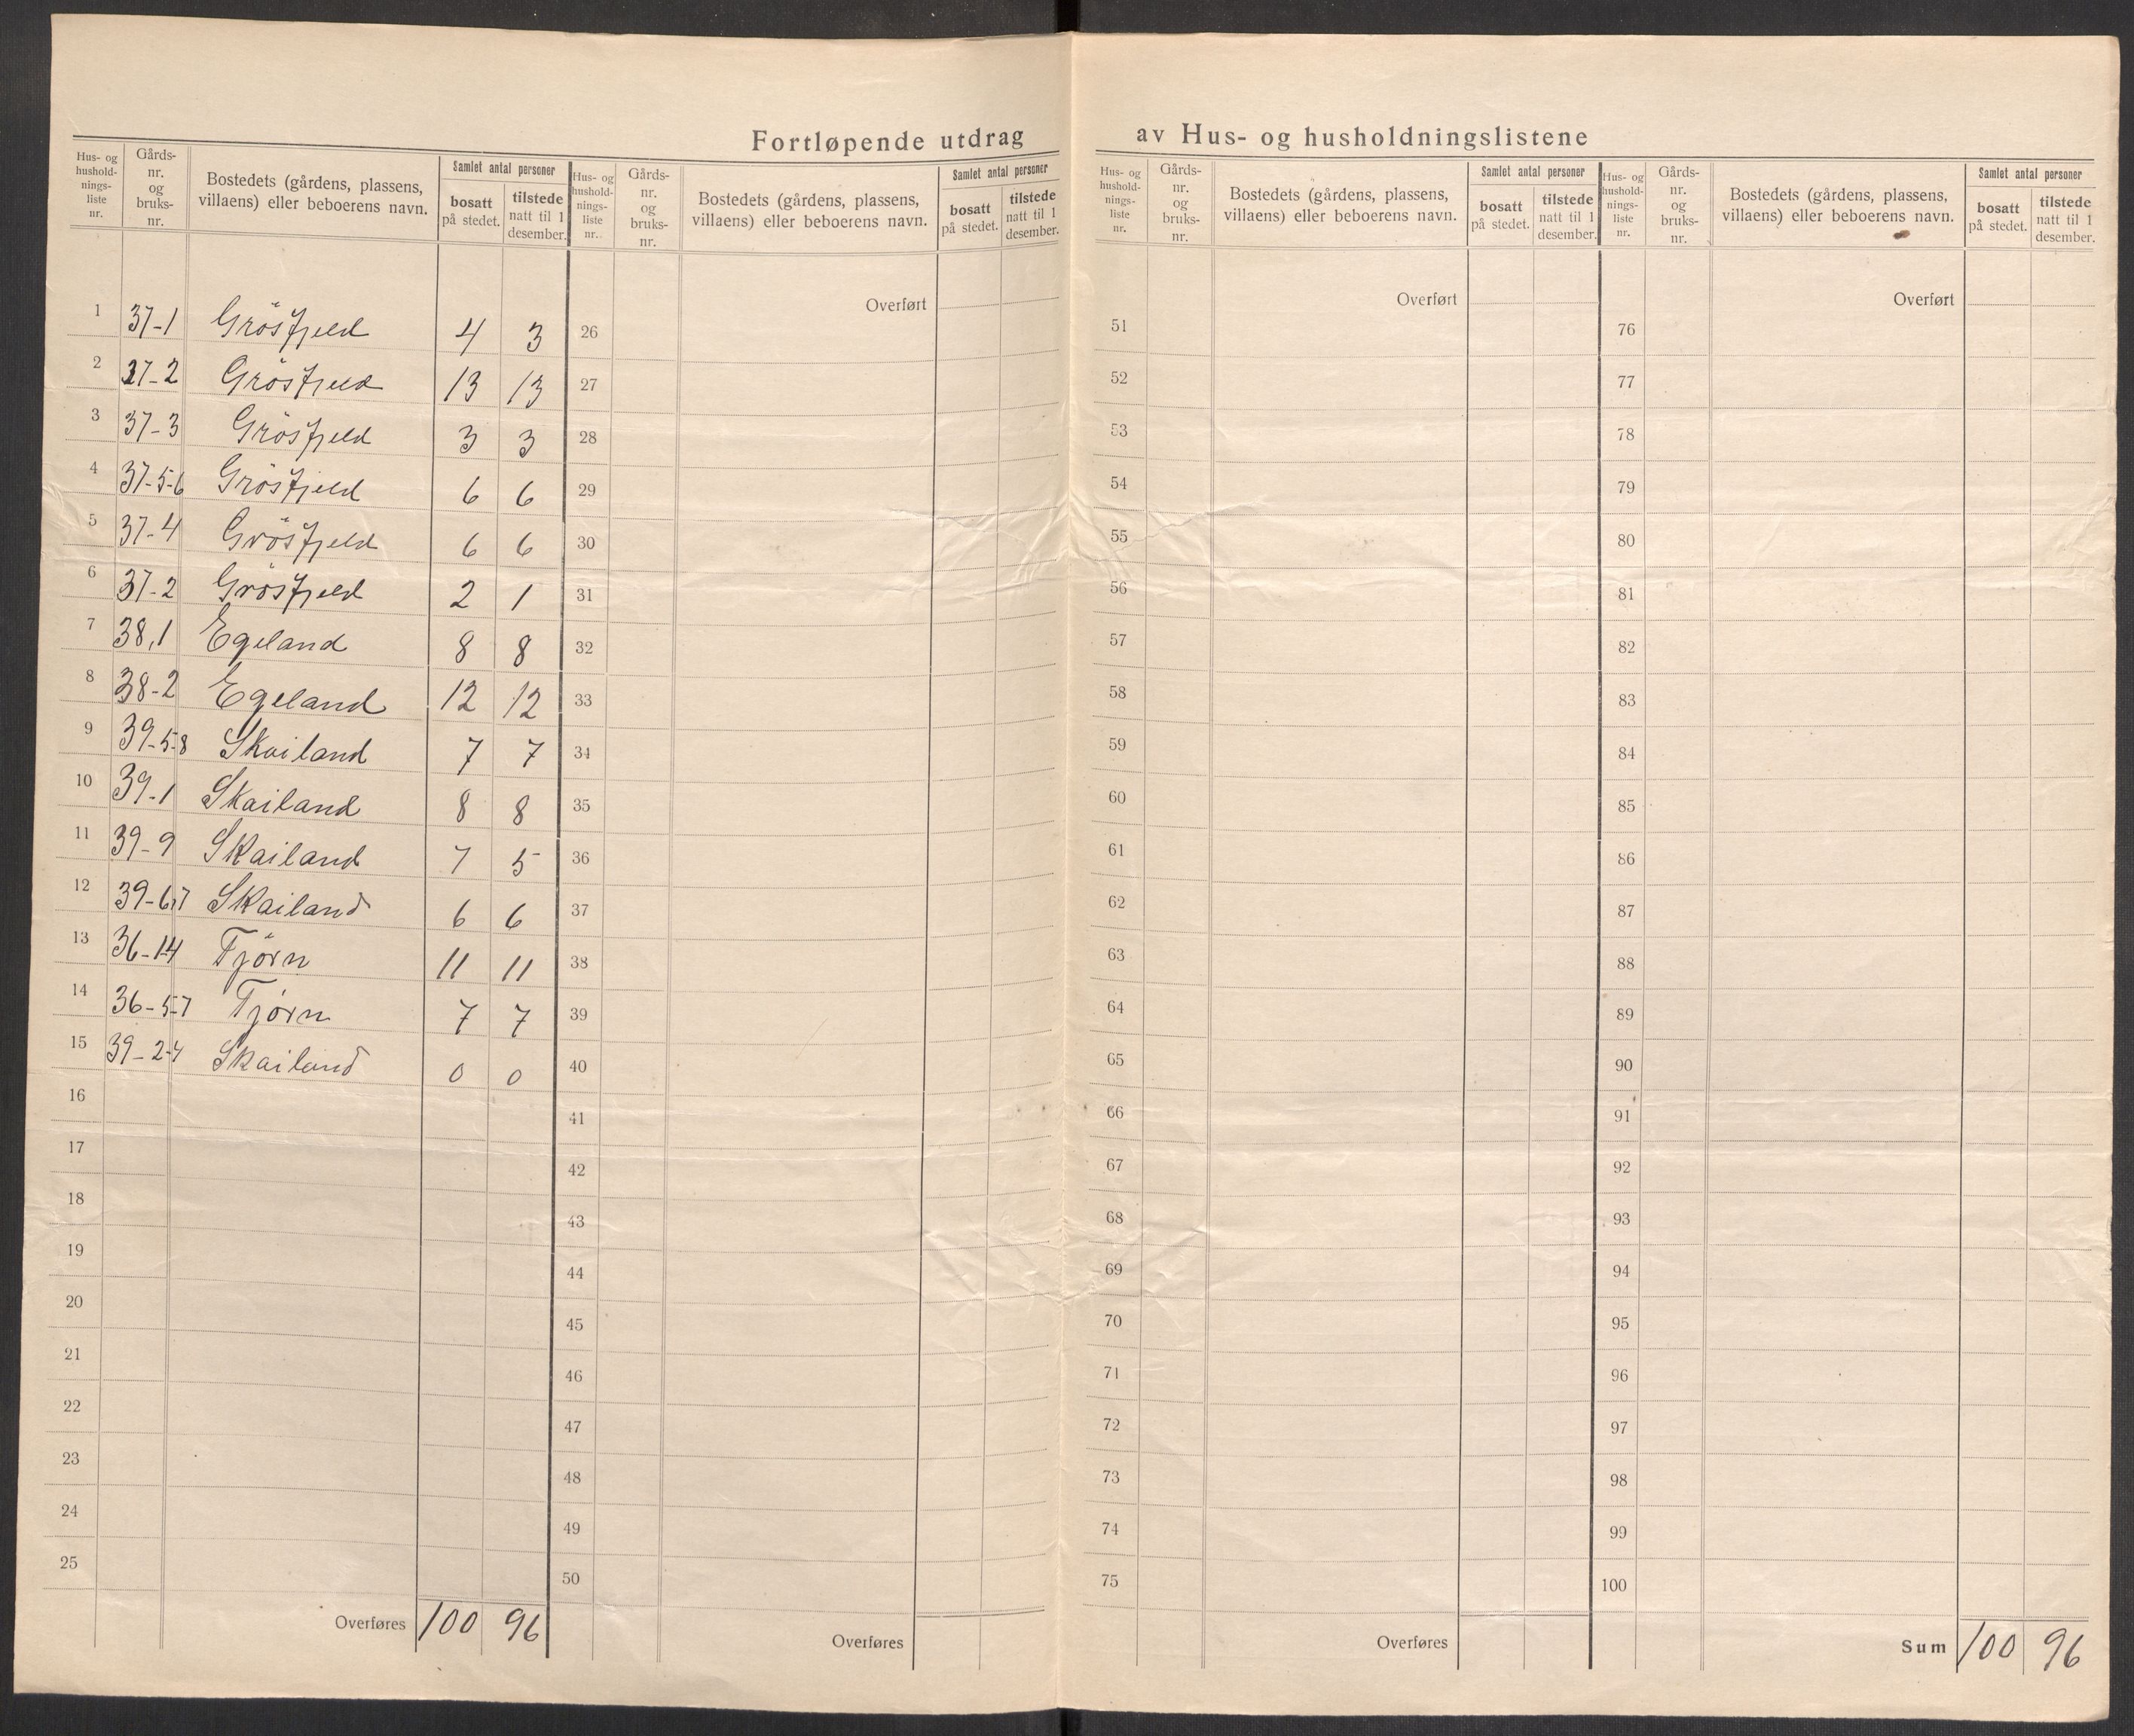 Fortløpende utdrag av Hus- og husholdningslistene
Hus- og hushold- nings- liste nr. | Gårds- nr. og bruks- nr. | Bostedets (gårdens, plassens, villaens) eller beboerens navn. | Samlet antal personer | bosatt på stedet. | tilstede natt til 1 desember.
Hus- og hushold- nings- liste nr. | Gårds- nr. og bruks- nr. | Bostedets (gårdens, plassens, villaens) eller beboerens navn. | Samlet antal personer | bosatt på stedet. | tilstede natt til 1 desember.
Hus- og hushold- nings- liste nr. | Gårds- nr. og bruks- nr. | Bostedets (gårdens, plassens, villaens) eller beboerens navn. | Samlet antal personer | bosatt på stedet. | tilstede natt til 1 desember.
Hus- og hushold- nings- liste nr. | Gårds- nr. og bruks- nr. | Bostedets (gårdens, plassens, villaens) eller beboerens navn. | Samlet antal personer | bosatt på stedet. | tilstede natt til 1 desember.
Overført Overført Overført
1 37-1 Grösfjeld 4 3 26 51 76
2 37-2 Grösfjeld 13 13 27 52 77
3 37-3 Grösfjeld 3 3 28 53 78
4 37-5-6 Grösfjeld 6 6 29 54 79
5 37-4 Grösfjeld 6 6 30 55 80
6 37-2 Grösfjeld 2 1 31 56 81
7 38,1 Egeland 8 8 32 57 82
8 38-2 Egeland 12 12 33 58 83
9 39-5-8 Skailand 7 7 34 59 84
10 39-1 Skailand 8 8 35 60 85
11 39-9 Skailand 7 5 36 61 86
12 39-6,7 Skailand 6 6 37 62 87
13 36-14 Tjörn 11 11 38 63 88
14 36-5-7 Tjörn 7 7 39 64 89
15 39-2-4 Skailand 0 0 40 65 90
16 41 66 91
17 42 67 92
18 43 68 93
19 44 69 94
20 45 70 95
21 46 71 96
22 47 72 97
23 48 73 98
24 49 74 99
25 50 75 100
Overføres 100 96 Overføres Overføres Sum 100 96